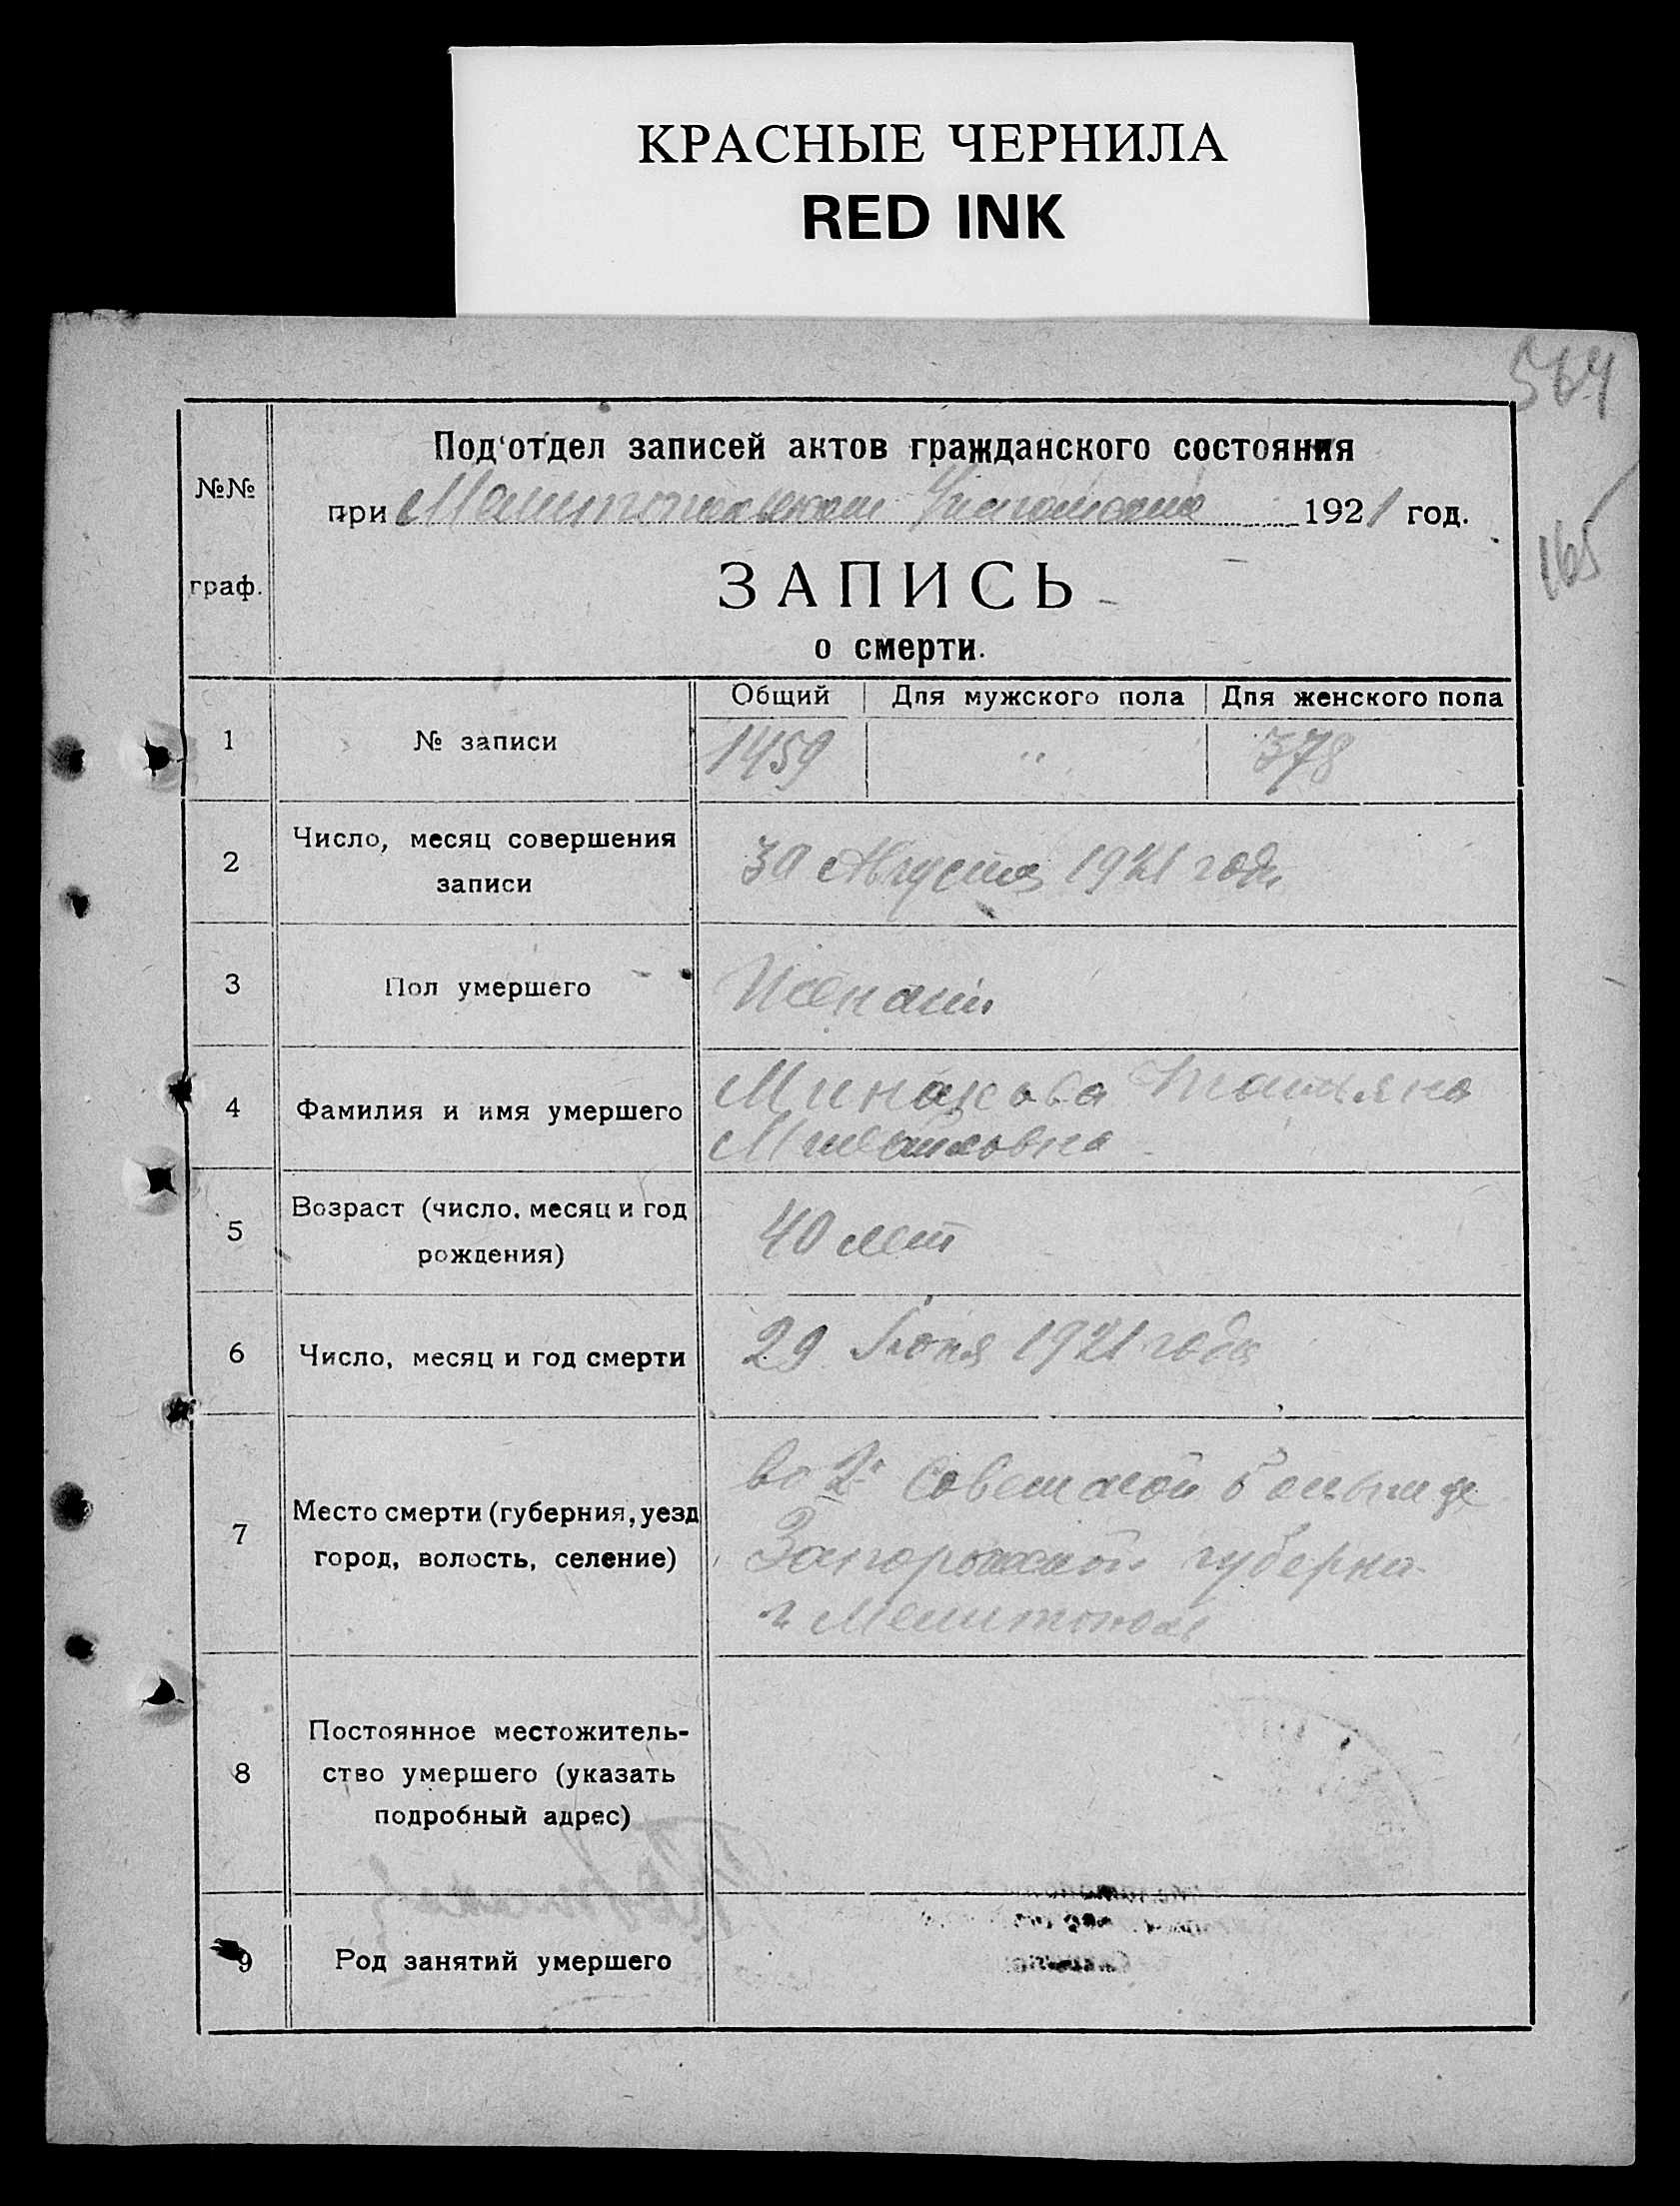 КРАСНЫЕ ЧЕРНИЛА
RED INK
564
165
№№
граф.
Под'отдел записей актов гражданского состояния
при Мелитопольском 1921 год.
ЗАПИСЬ
о смерти.
Общий Для мужского пола Для женского пола
1 № записи 1459 " 378
2 Число, месяц совершения
записи
30 Августа 1921 года
3 Пол умершего
Женский
4 Фамилия и имя умершего
Минакова Татьяна
Михайловна
5 Возраст (число, месяц и год
рождения)
40 лет
6 Число, месяц и год смерти
29 1921 года
7 Место смерти (губерния, уезд
город, волость, селение)
во 2й Советской больнице
Запорожской губерни
г Мелитополь
8 Постоянное местожитель-
ство умершего (указать
подробный адрес)
9 Род занятий умершего